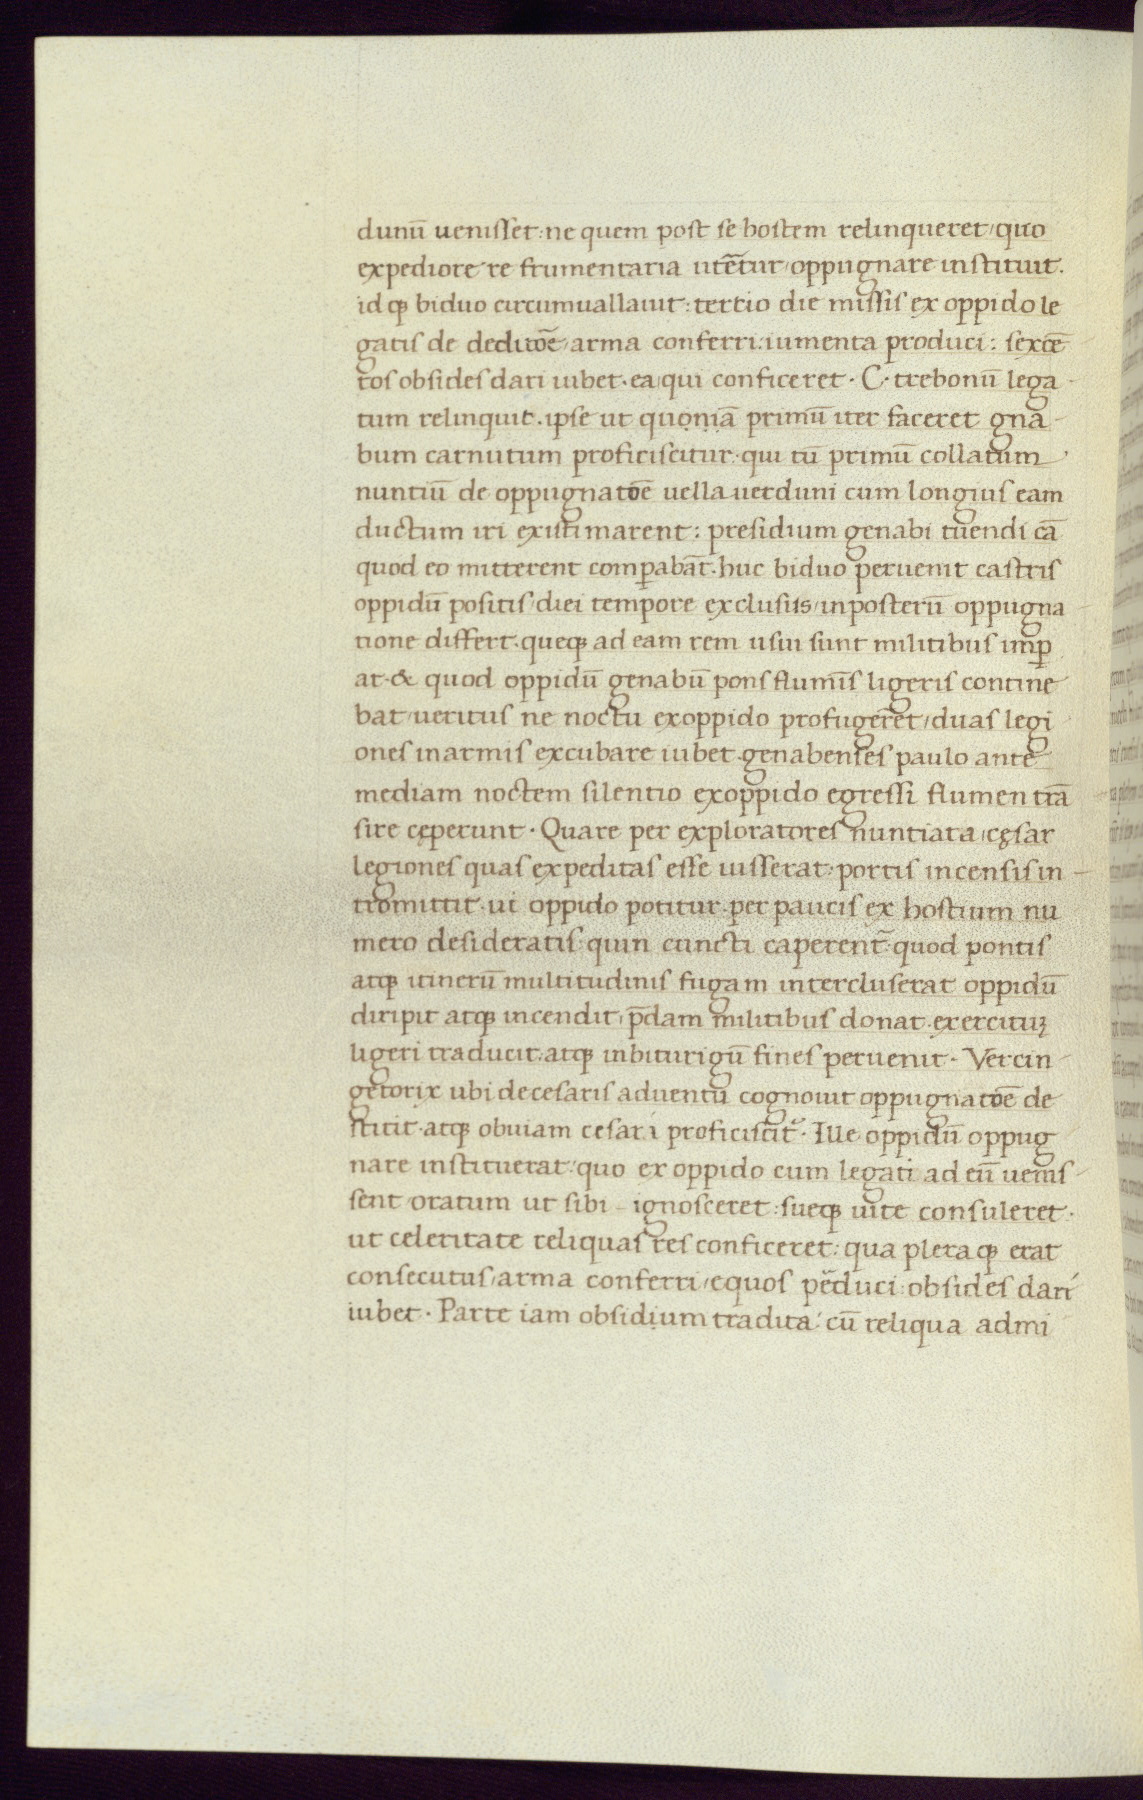 dunū uenisset: ne quem post se hostem relinqueret, quo
expediore re frumentaria utēr̃tur, oppugnare instituit.
id qꝫ biduo circumuallauit: tertio die missis ex oppido le
gatis de deditōe, arma conferri: iumenta produci: sexcē
tos obsides dari iubet. ea, qui conficeret. C. trebonū lega
tum relinquit. ipse ut quoniā primū iter faceret gna
bum carnutum proficiscitur. qui tū primū collatum
nuntiū de oppugnatōe uella uerduni cum longius eam
ductum iri existimarent: presidium genabi tuendi cā
quod eo mitterent comꝑabāt. huc biduo peruenit castris
oppidū positis, diei tempore exclusus, inposterū oppugna
tione differt. queqꝫ ad eam rem usui sunt militibus imꝑ
at. & quod oppidū genabū pons flumīs ligeris contine
bat, ueritus ne noctu exoppido profugerēt, duas legi
ones inarmis excubare iubet. genabenses paulo ante
mediam noctem silentio exoppido egressi flumen trā
sire cęperunt. Quare per exploratores nuntiata, cęsar
legiones quas expeditas esse iusserat: portis incensis in
tromittit. ui oppido potitur. per paucis ex hostium nu
mero desideratis: quin cuncti caperent᷑. quod pontis
atqꝫ itinerū multitudinis fugam intercluserat oppidū
diripit atqꝫ incendit, p̄dam militibus donat. exercituꝫ
ligeri traducit. atqꝫ inbiturigū fines peruenit. Vercin
getorix ubi decesaris aduentū cognouit oppugnatōe de
stitit. atqꝫ obuiam cesari proficiscit᷑. Ille oppidū oppug
nare instituerat: quo ex oppido cum legati ad eū uenis
sent oratum ut sibi ignosceret: sueqꝫ uite consuleret.
ut celeritate reliquas res conficeret: qua pleraqꝫ erat
consecutus, arma conferri, equos pēduci: obsides dari
iubet. Parte iam obsidium tradita: cū reliqua admi